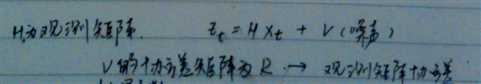 H为观测矩阵. Z_t = H X_t + V (噪声)
V的协方差矩阵为 R → 观测矩阵协方差